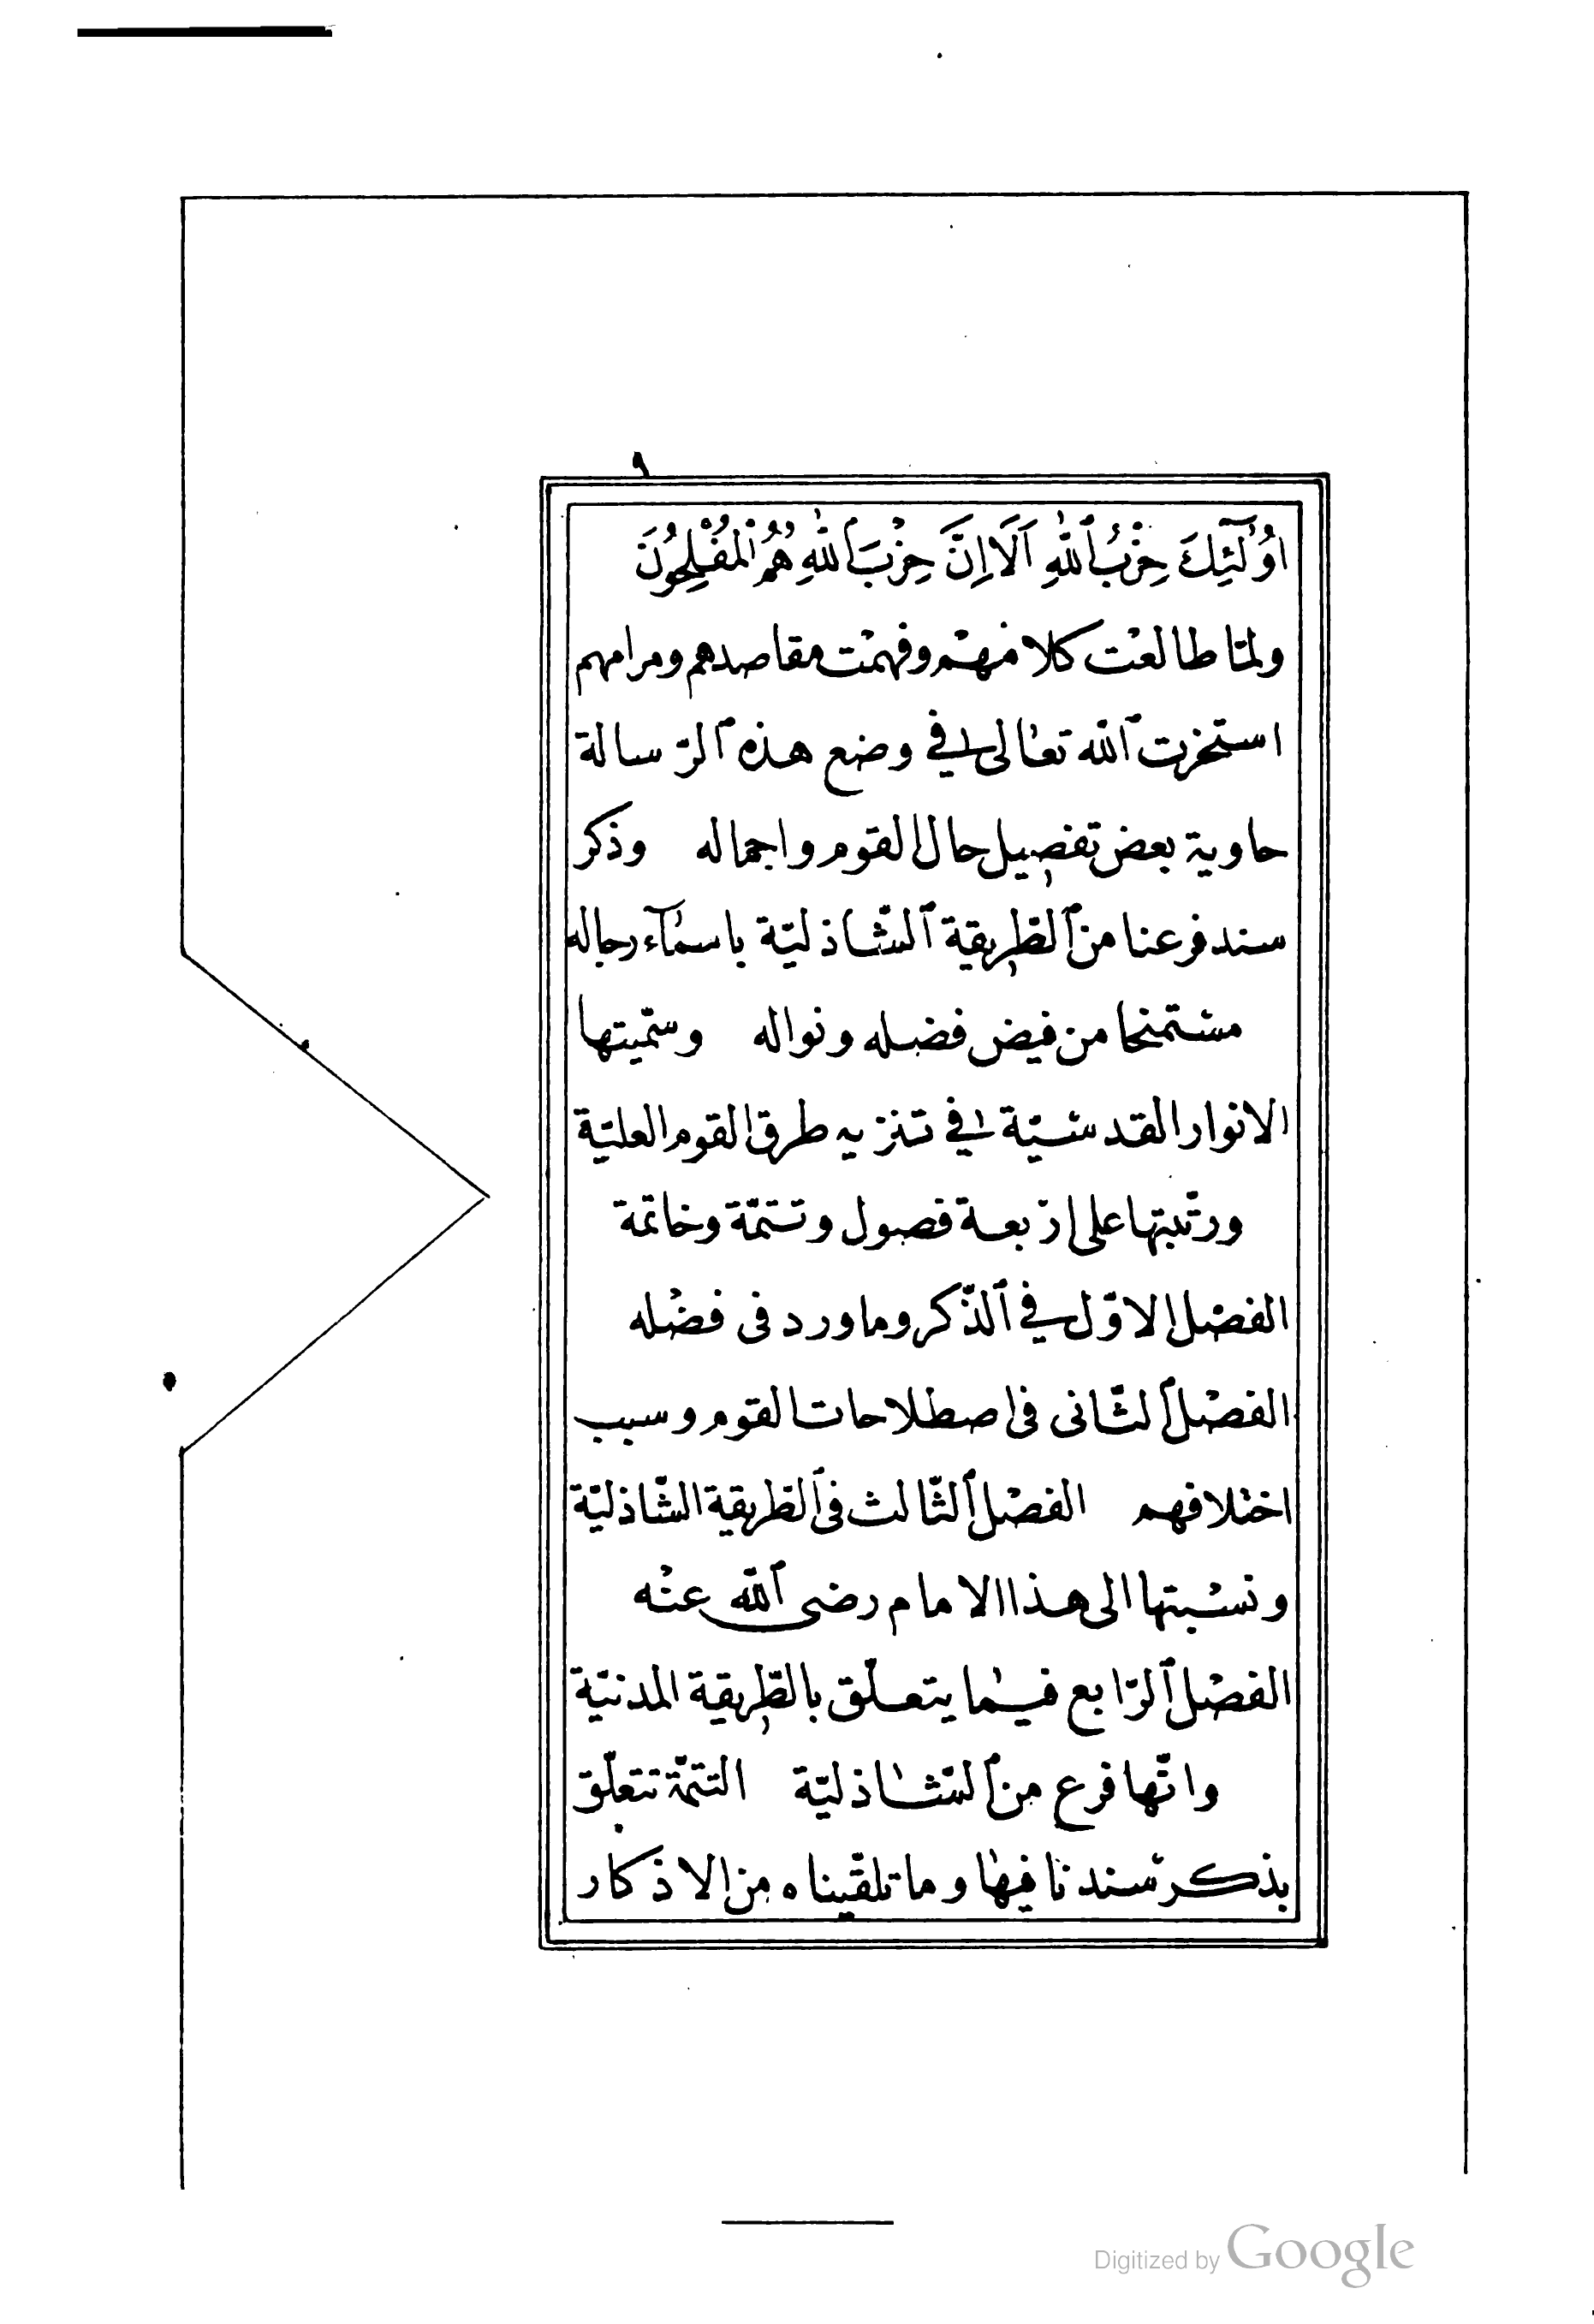 ٩
اُولٰٓئِكَ حِزْبُ ٱللّٰهِ اَلَا اِنَّ حِزْبَ ٱللّٰهِ هُمُ ٱلْمُفْلِحُونَ
ولمّا طالعْت كلامهمْ وفهمْت مقاصدهم ومرامهم
استخرت ٱللّه تعالى في وضع هذه ٱلرّسالة
حاوية بعض تفصيل حال القوم واجماله وذكر
سند فرعنا من ٱلطّريقة ٱلشّاذليّة باسمآء رجاله
مستمنحا من فيض فضله ونواله وسمّيتها
الانوار القدسيّة في تنزيه طرق القوم العليّة
ورتّبتها على ارْبعة فصول وتتمّة وخاتمة
الفصْل الاوّل في ٱلذّكر وما ورد فى فضْله
الفصْل ٱلثّانى فى اصطلاحات القوم وسبب
اختلافهم الفصْل ٱلثّالث فى ٱلطّريقة الشّاذليّة
ونسْبتها الى هذا الامام رضى ٱللّه عنْه
الفصْل ٱلرّابع فيما يتعلّق بالطّريقة المدنيّة
وانّها فرع من ٱلشّاذليّة التتمّة تتعلّق
بذكر سندنا فيها وما تلقّيناه من الاذكار
Digitized by Google